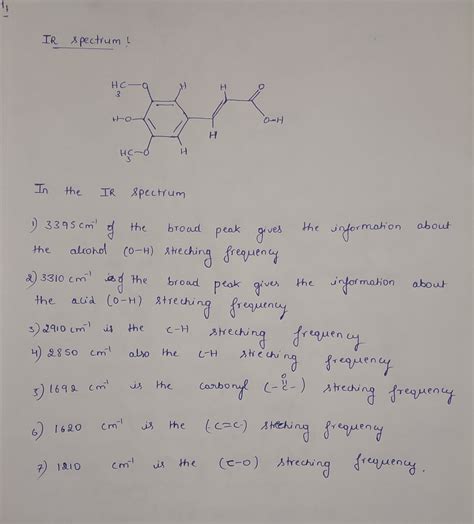 IR spectrum!
H3C-O H H O
H-O O-H
H3C-O H H
In the IR spectrum
1) 3395 cm-1 of the broad peak gives the information about
the alcohol (O-H) streching frequency
2) 3310 cm-1 of the broad peak gives the information about
the acid (O-H) streching frequency
3) 2910 cm-1 is the C-H streching frequency
4) 2850 cm-1 also the C-H streching frequency
5) 1692 cm-1 is the carbonyl (-C-) streching frequency
O
6) 1620 cm-1 is the (C=C) streching frequency
7) 1210 cm-1 is the (C-O) streching frequency.